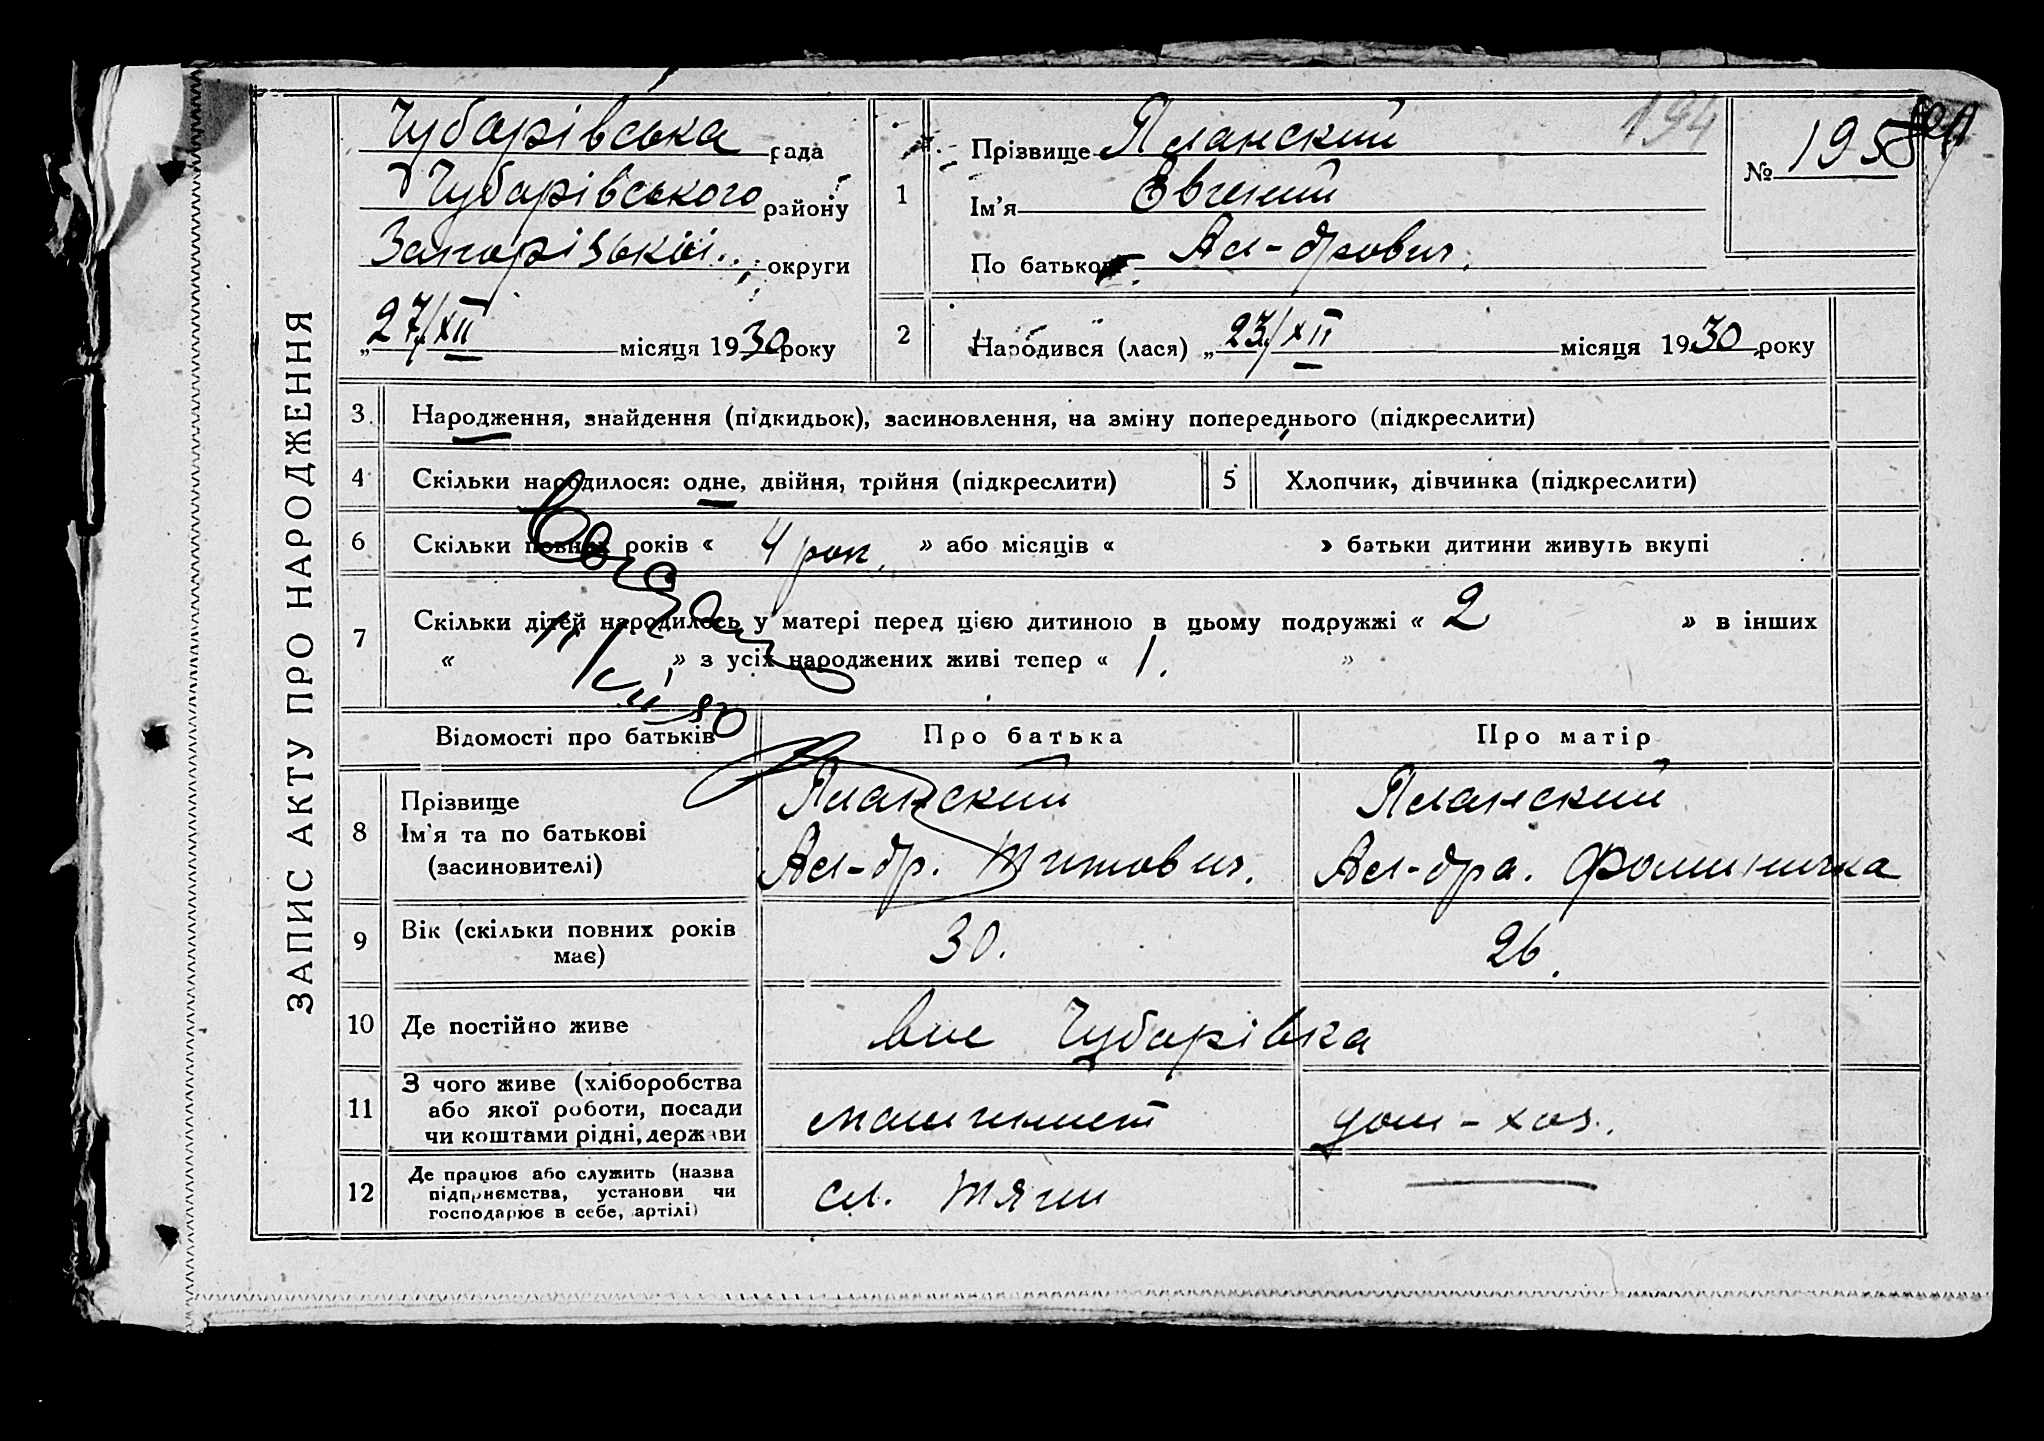 ЗАПИС АКТУ ПРО НАРОДЖЕННЯ
Чубарівська рада
Чубарівського району
округи
„27/XII місяця 1930 року
194
1 Прізвище Планский
Ім'я Евгений
По батькові Ал-дрович.
№ 195
2 Народився (лася) „23/XII місяця 1930 року
3. Народження, знайдення (підкидьок), засиновлення, на зміну попереднього (підкреслити)
4 Скільки народилося: одне, двійня, трійня (підкреслити) 5 Хлопчик, дівчинка (підкреслити)
6 Скільки повних років « 4 рок. » або місяців « » батьки дитини живуть вкупі
7 Скільки дітей народилось у матері перед цією дитиною в цьому подружжі « 2 » в інших
« » з усіх народжених живі тепер « 1. »
Відомості про батьків Про батька Про матір
8 Прізвище
Ім'я та по батькові
(засиновителі)
Планский
Ал-др. Титович.
Планский
Ал-дра. Фоминична
9 Вік (скільки повних років
має)
30.
26.
10 Де постійно живе
Чубарівка
11 З чого живе (хліборобства
або якої роботи, посади
чи коштами рідні, держави
машинист
дом-хоз.
12 Де працює або служить (назва
підприємства, установи чи
господарює в себе, артілі)
сл. тяги